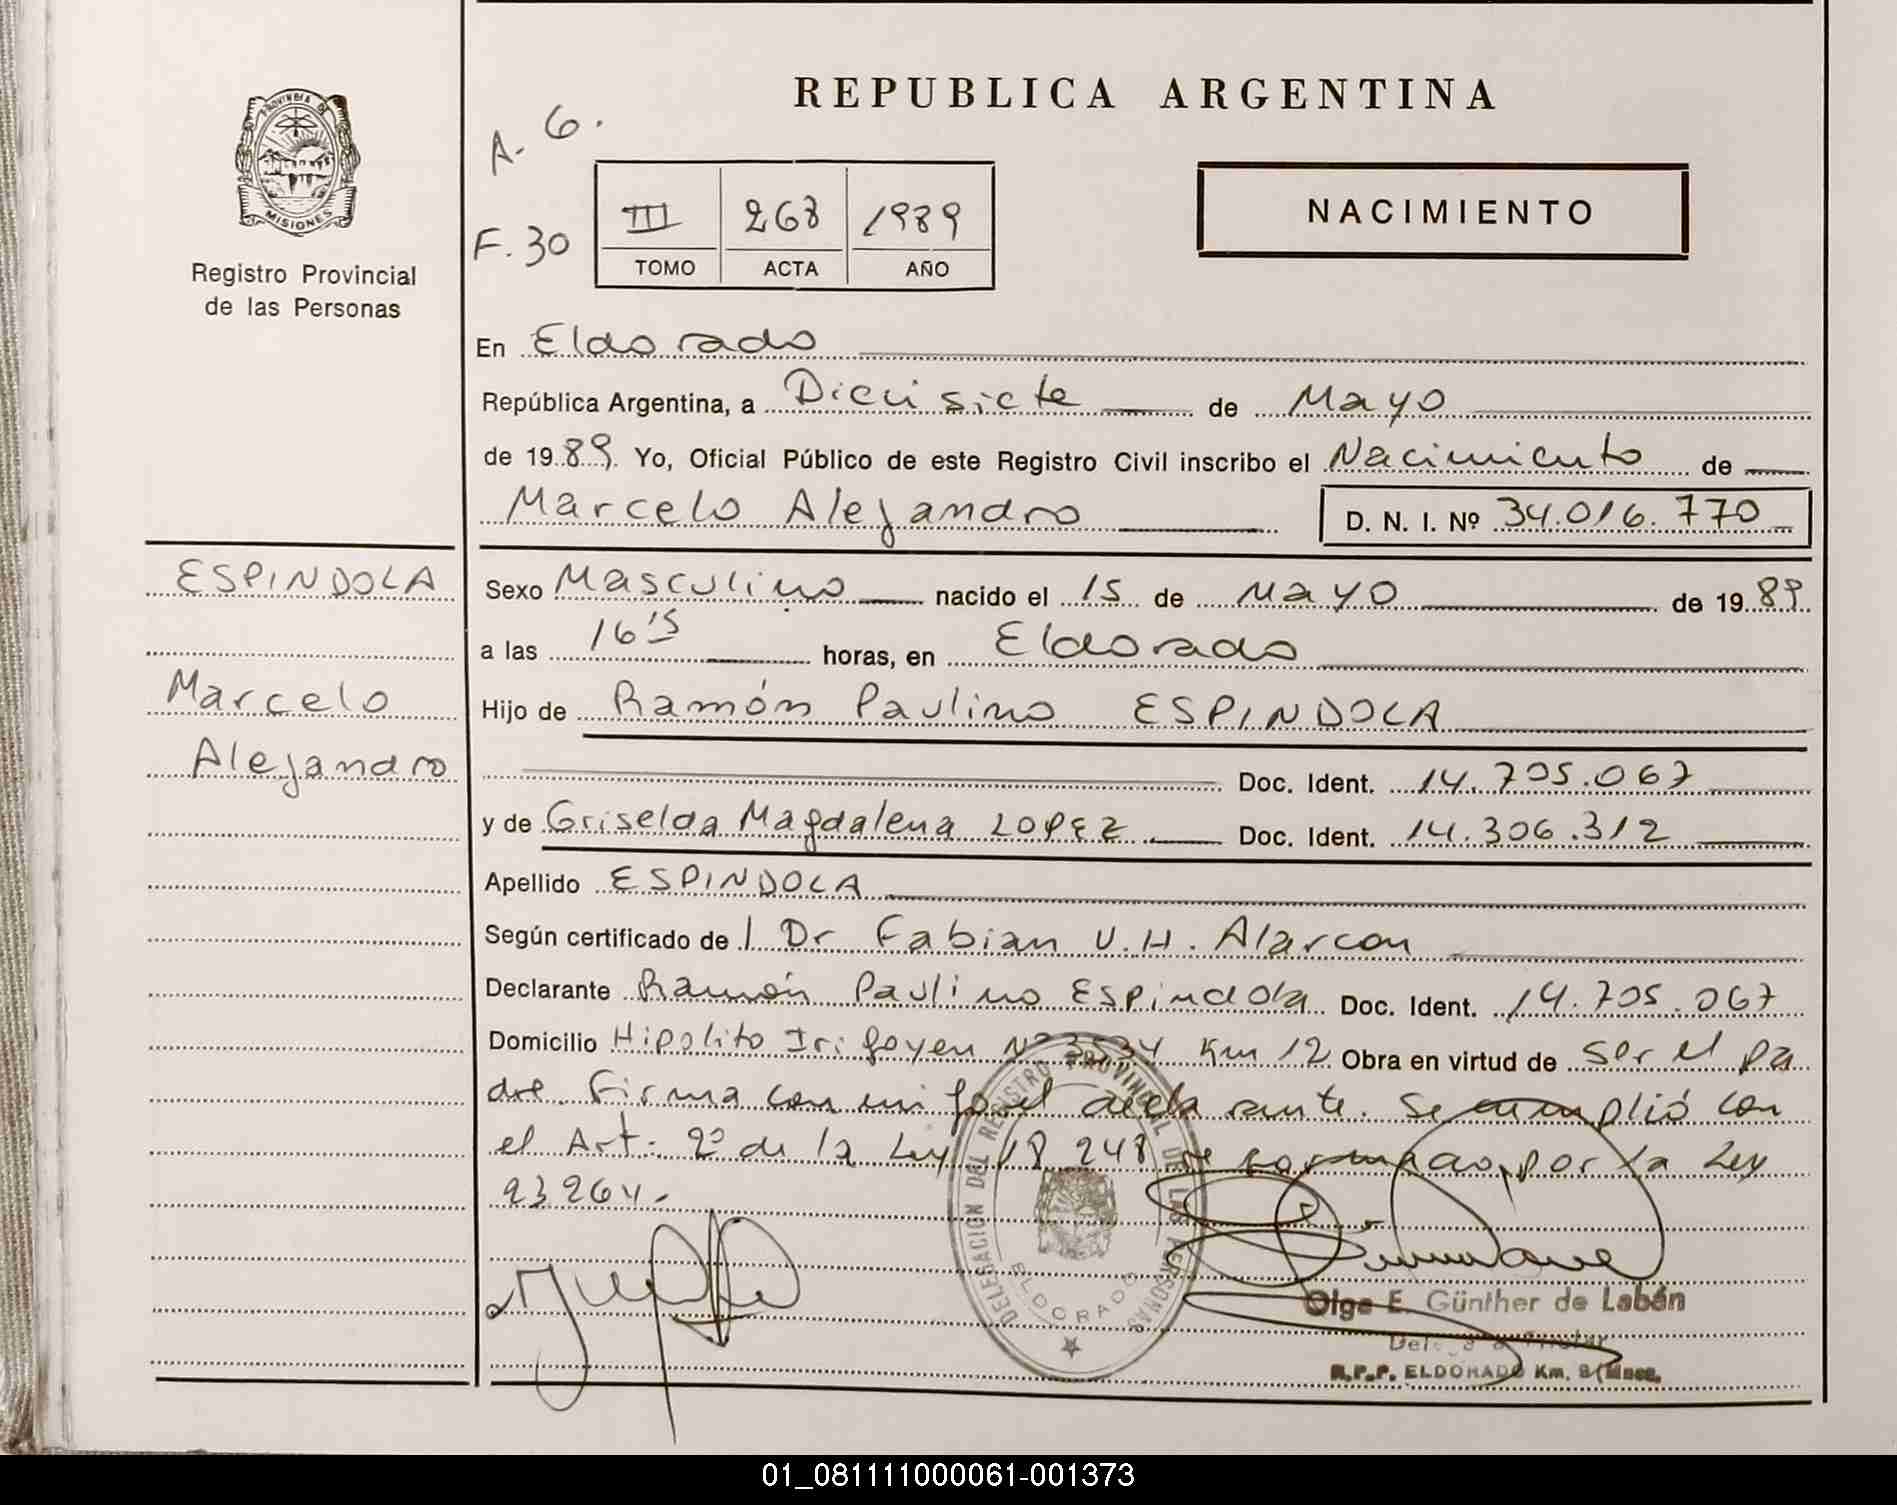 REPUBLICA ARGENTINA
PROVINCIA DE
MISIONES
Registro Provincial
de las Personas
A. G.
F. 30
III 268 1989
TOMO ACTA AÑO
NACIMIENTO
En Eldorado
República Argentina, a Diecisiete de Mayo
de 1989. Yo, Oficial Público de este Registro Civil inscribo el Nacimiento de
Marcelo Alejandro D. N. I. Nº 34.016.770
ESPINDOLA
Marcelo
Alejandro
Sexo Masculino nacido el 15 de Mayo de 1989
a las 16 15 horas, en Eldorado
Hijo de Ramón Paulino ESPINDOLA
Doc. Ident. 14.705.067
y de Griselda Magdalena LOPEZ Doc. Ident. 14.306.312
Apellido ESPINDOLA
Según certificado de l Dr Fabian V. H. Alarcon
Declarante Ramón Paulino Espindola Doc. Ident. 14.705.067
Domicilio Hipolito Irigoyen Nº 3534 Km 12 Obra en virtud de ser el pa
dre. Firma con migo el declarante. Se cumplió con
el Art. 2º de la Ley 18 248 por la Ley
23264.-
DELEGACION DEL REGISTRO PROVINCIAL DE LAS PERSONAS
ELDORADO
Olga E. Günther de Labán
R.P.P. ELDORADO Km. 9 (Mnes.
01_081111000061-001373